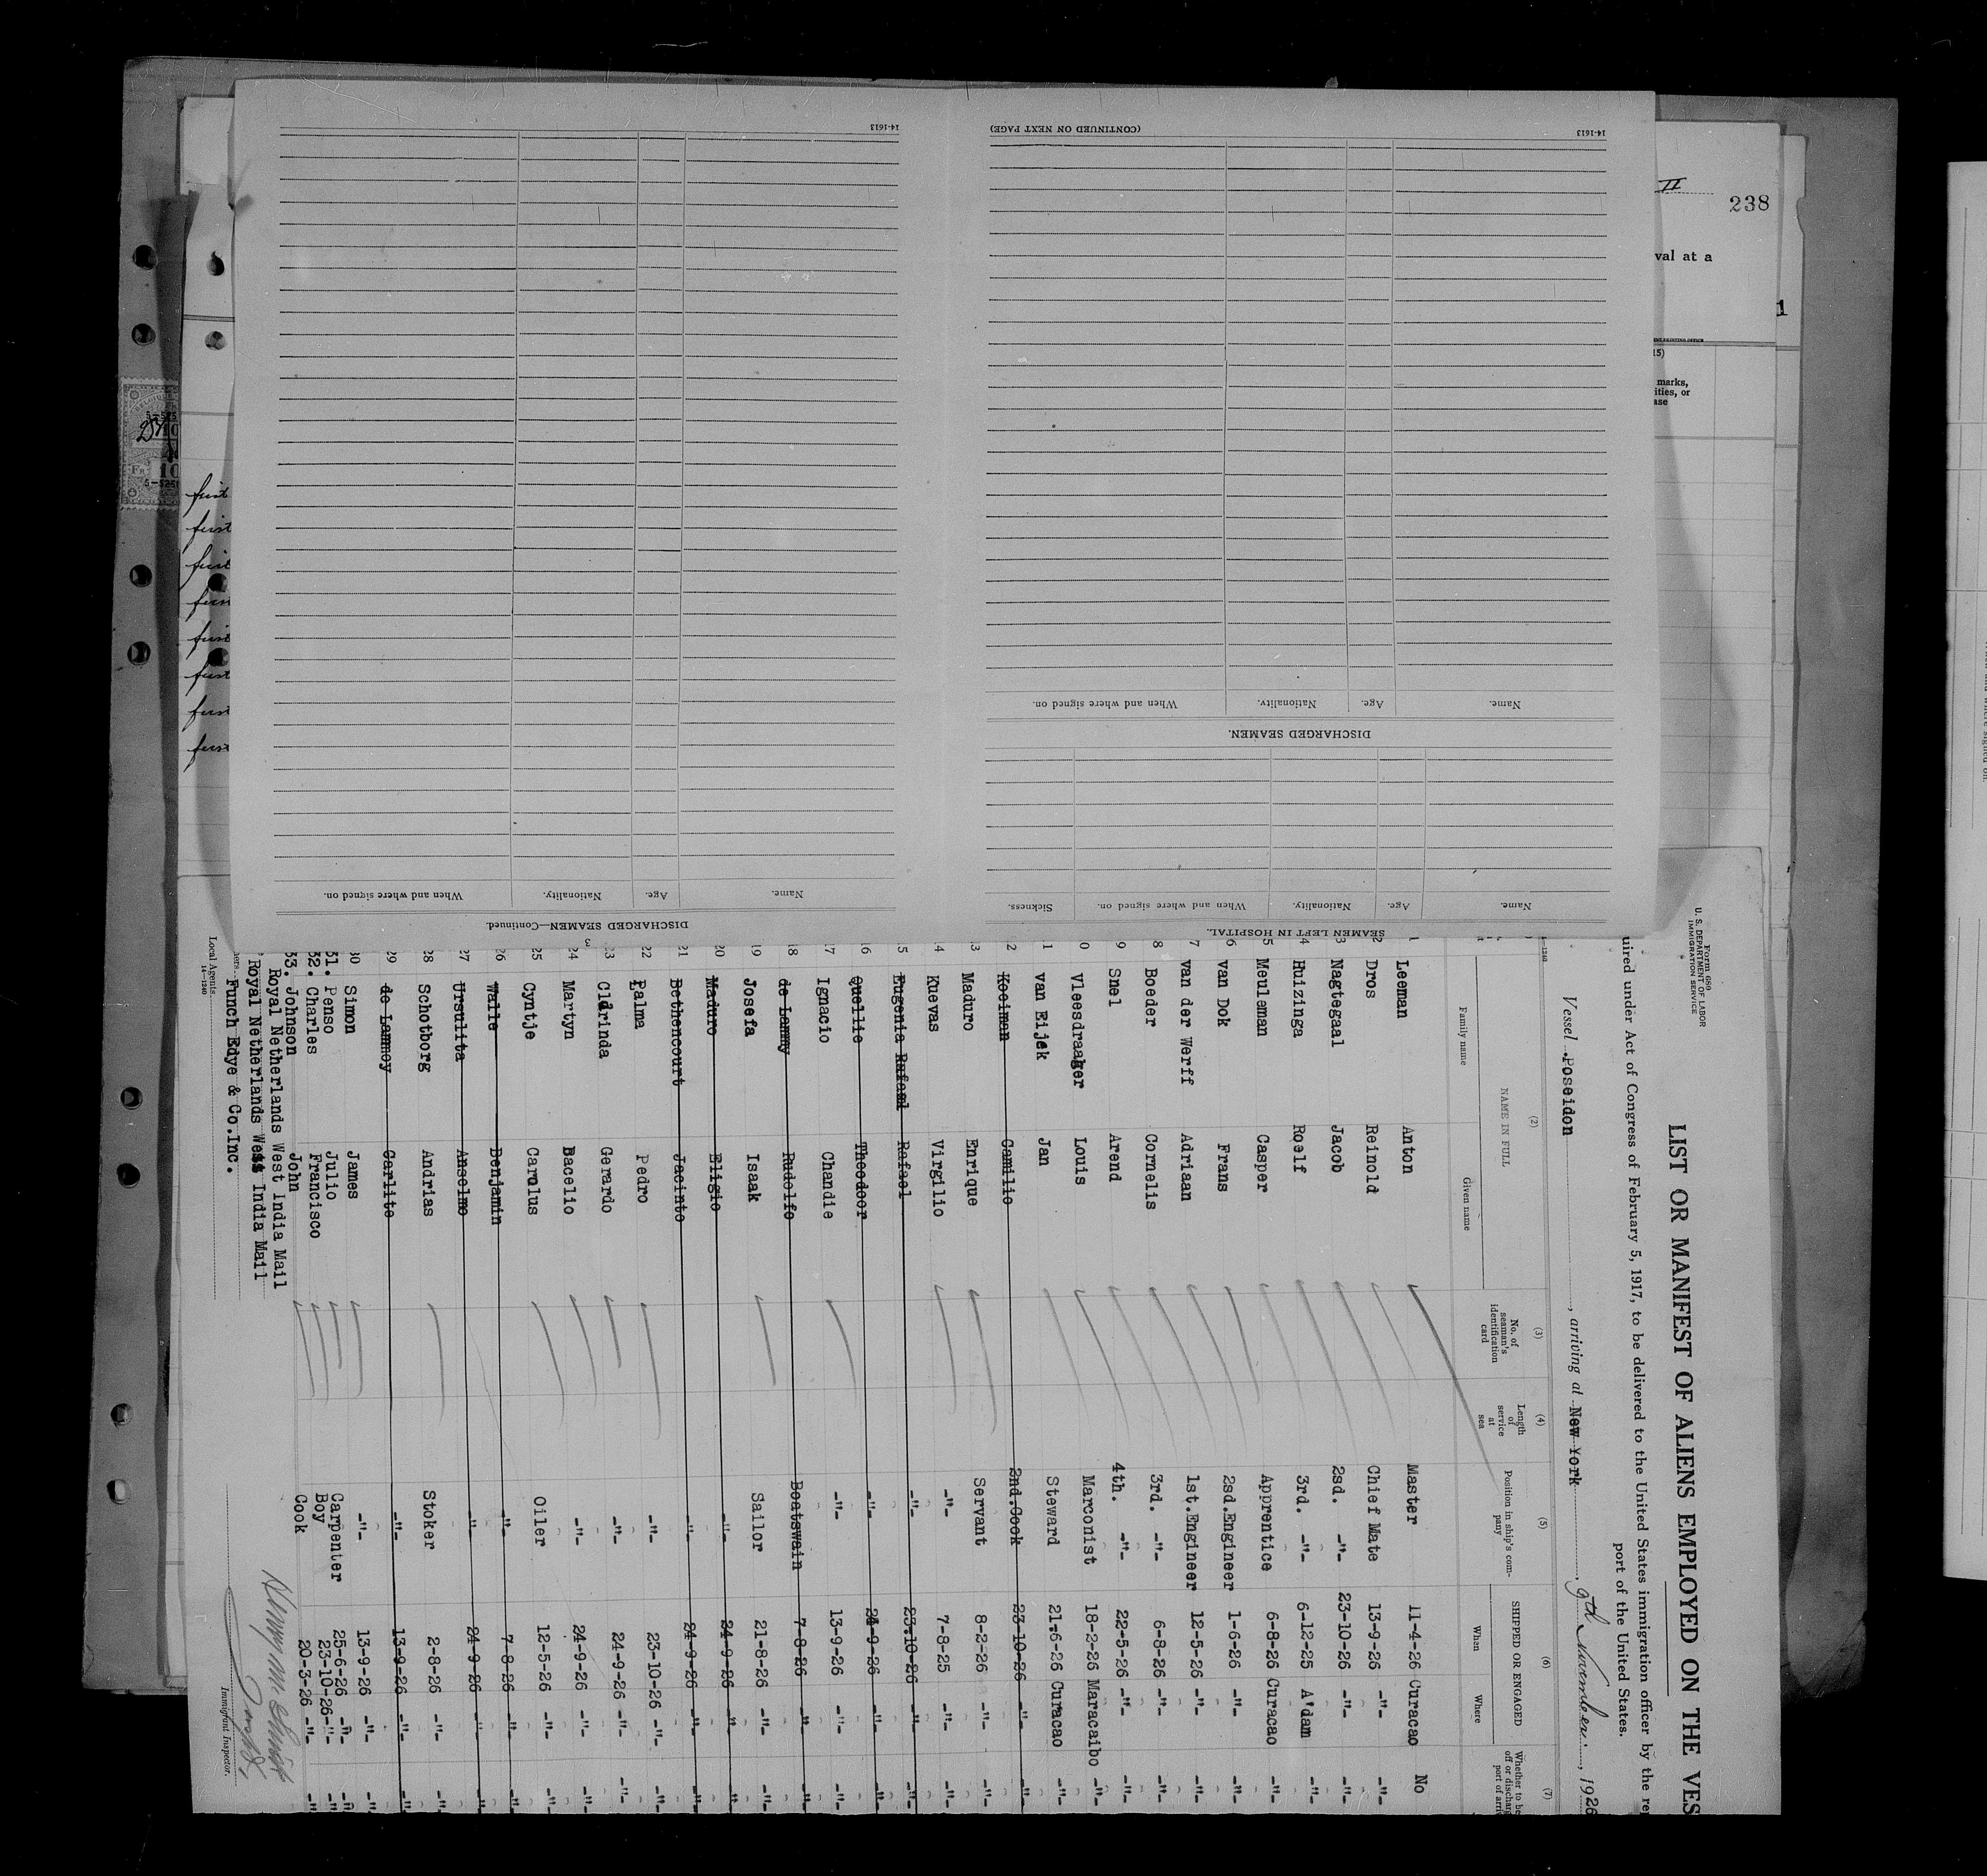 238
val at a
1
15)
marks,
ities, or
ase
14-1613
(CONTINUED ON NEXT PAGE)
14-1613
Name.
Age.
Nationality.
When and where signed on.
DISCHARGED SEAMEN.
Name.
Age.
Nationality.
When and where signed on.
Sickness.
SEAMEN LEFT IN HOSPITAL.
Name.
Age.
Nationality.
When and where signed on.
DISCHARGED SEAMEN—Continued.
3
first
first
first
first
first
first
first
first
Form 680
U. S. DEPARTMENT OF LABOR
IMMIGRATION SERVICE
LIST OR MANIFEST OF ALIENS EMPLOYED ON THE VES
uired under Act of Congress of February 5, 1917, to be delivered to the United States immigration officer by the rep
port of the United States.
Vessel Poseidon, arriving at New York, 9th November, 1926
(2) (3) (4) (5) (6) (7)
NAME IN FULL
Family name Given name
No. of seaman's identification card
Length of service at sea
Position in ship's company
SHIPPED OR ENGAGED
When Where
Whether to be
off or discharg
port of arriv
1 Leeman Anton Master 11-4-26 Curacao No
2 Dros Reinold Chief Mate 13-9-26 -"- -"-
3 Nagtegaal Jacob 2sd. -"- 23-10-26 -"- -"-
4 Huizinga Roelf 3rd. -"- 6-12-25 A'dam -"-
5 Meuleman Casper Apprentice 6-8-26 Curacao -"-
6 van Dok Frans 2sd.Engineer 1-6-26 -"- -"-
7 van der Werff Adriaan 1st.Engineer 12-5-26 -"- -"-
8 Boeder Cornelis 3rd. -"- 6-8-26 -"- -"-
9 Snel Arend 4th. -"- 22-5-26 -"- -"-
0 Vleesdraager Louis Marconist 18-2-26 Maracaibo -"-
1 van Eijck Jan Steward 21-6-26 Curacao -"-
2 Kooiman Camilio 2nd.Cook 23-10-26 -"- -"-
3 Maduro Enrique Servant 8-2-26 -"- -"-
4 Kuevas Virgilio -"- 7-8-25 -"- -"-
5 Eugenia Rafael Rafael -"- 23-10-26 -"- -"-
16 Quellie Theodoor -"- 24-9-26 -"- -"-
17 Ignacio Chandie -"- 13-9-26 -"- -"-
18 de Lammy Rudolfo Boatswain 7-8-26 -"- -"-
19 Josefa Isaak Sailor 21-8-26 -"- -"-
20 Maduro Eligio -"- 24-9-26 -"- -"-
21 Bethencourt Jacinto -"- 24-9-26 -"- -"-
22 Palma Pedro -"- 23-10-26 -"- -"-
23 Clarinda Gerardo -"- 24-9-26 -"- -"-
24 Martyn Baelio -"- 24-9-26 -"- -"-
25 Cyntje Carolus Oiler 12-5-26 -"- -"-
26 Walle Benjamin -"- 7-8-26 -"- -"-
27 Ursulita Anselmo -"- 24-9-26 -"- -"-
28 Schotborg Andrias Stoker 2-8-26 -"- -"-
29 de Lannoy Carlito -"- 13-9-26 -"- -"-
30 Simon James -"- 13-9-26 -"- -"-
31. Penso Julio Carpenter 25-6-26 -"- -"-
32. Charles Francisco Boy 23-10-26 -"- -"-
33. Johnson John Cook 20-3-26 -"- -"-
Royal Netherlands West India Mail
Royal Netherlands West India Mail
Funch Edye & Co.Inc.
Local Agents
14-1240
Immigrant Inspector.